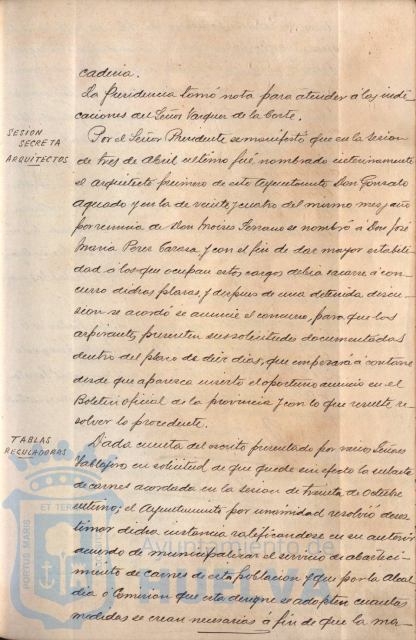 caderia.
La Presidencia tomó nota para atender á las indi
caciones del Señor Vazquez de la Corte.
SESION
SECRETA
ARQUITECTOS
Por el Señor Presidente se manifestó que en la sesion
de tres de Abril ultimo fué nombrado interinamente
el arquitecto primero de este Ayuntamiento Don Gonzalo
Aguado y en la de veinte y cuatro del mismo mes y año
por renuncia de Don Moises Serrano se nombró á Don José
Maria Perez Carasa y con el fin de dar mayor estabili
dad á los que ocupan estos cargos debia sacarse á con-
curso dichas plazas, y despues de una detenida discu-
sion se acordó se anuncie el concurso, para que los
aspirantes presenten sus solicitudes documentadas
dentro del plazo de diez dias, que empezará á contarse
desde que aparezca inserto el oportuno anuncio en el
Boletin oficial de la provincia y con lo que resulte re-
solver lo procedente.
TABLAS
REGULADORAS
Dada cuenta del escrito presentado por Señores
Tablajeros en solicitud de que quede sin efecto la subasta
de carnes acordada en la sesion de treinta de Octubre
ultimo; el Ayuntamiento por unanimidad resolvió deses
timar dicha instancia ratificandose en su anterior
acuerdo de municipalizar el servicio de abasteci-
miento de carnes de esta poblacion y que por la Alcal
dia ó Comision que esta designe se adopten cuantas
medidas se crean necesarias á fin de que la ma-
PORTUS MARIS ET TERRAE
Ayuntamiento de
HUELVA